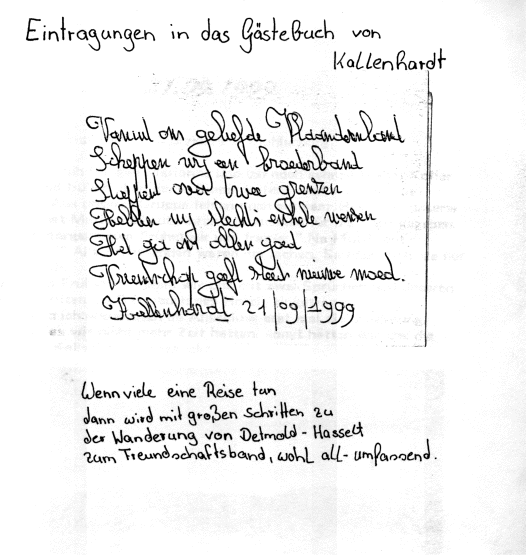 Eintragungen in das Gästebuch von
Kallenhardt
Vanuit ons geliefde Vlaanderenland
Scheppen wij een broederband
over twee grenzen
Hebben wij slechts enkele wensen
Het ga ons allen goed
Vriendschap geeft steeds nieuwe moed.
Kallenhardt 21/09/1999
Wenn viele eine Reise tun
dann wird mit großen Schritten zu
der Wanderung von Detmold - Hasselt
zum Freundschaftsband, wohl all-umfassend.